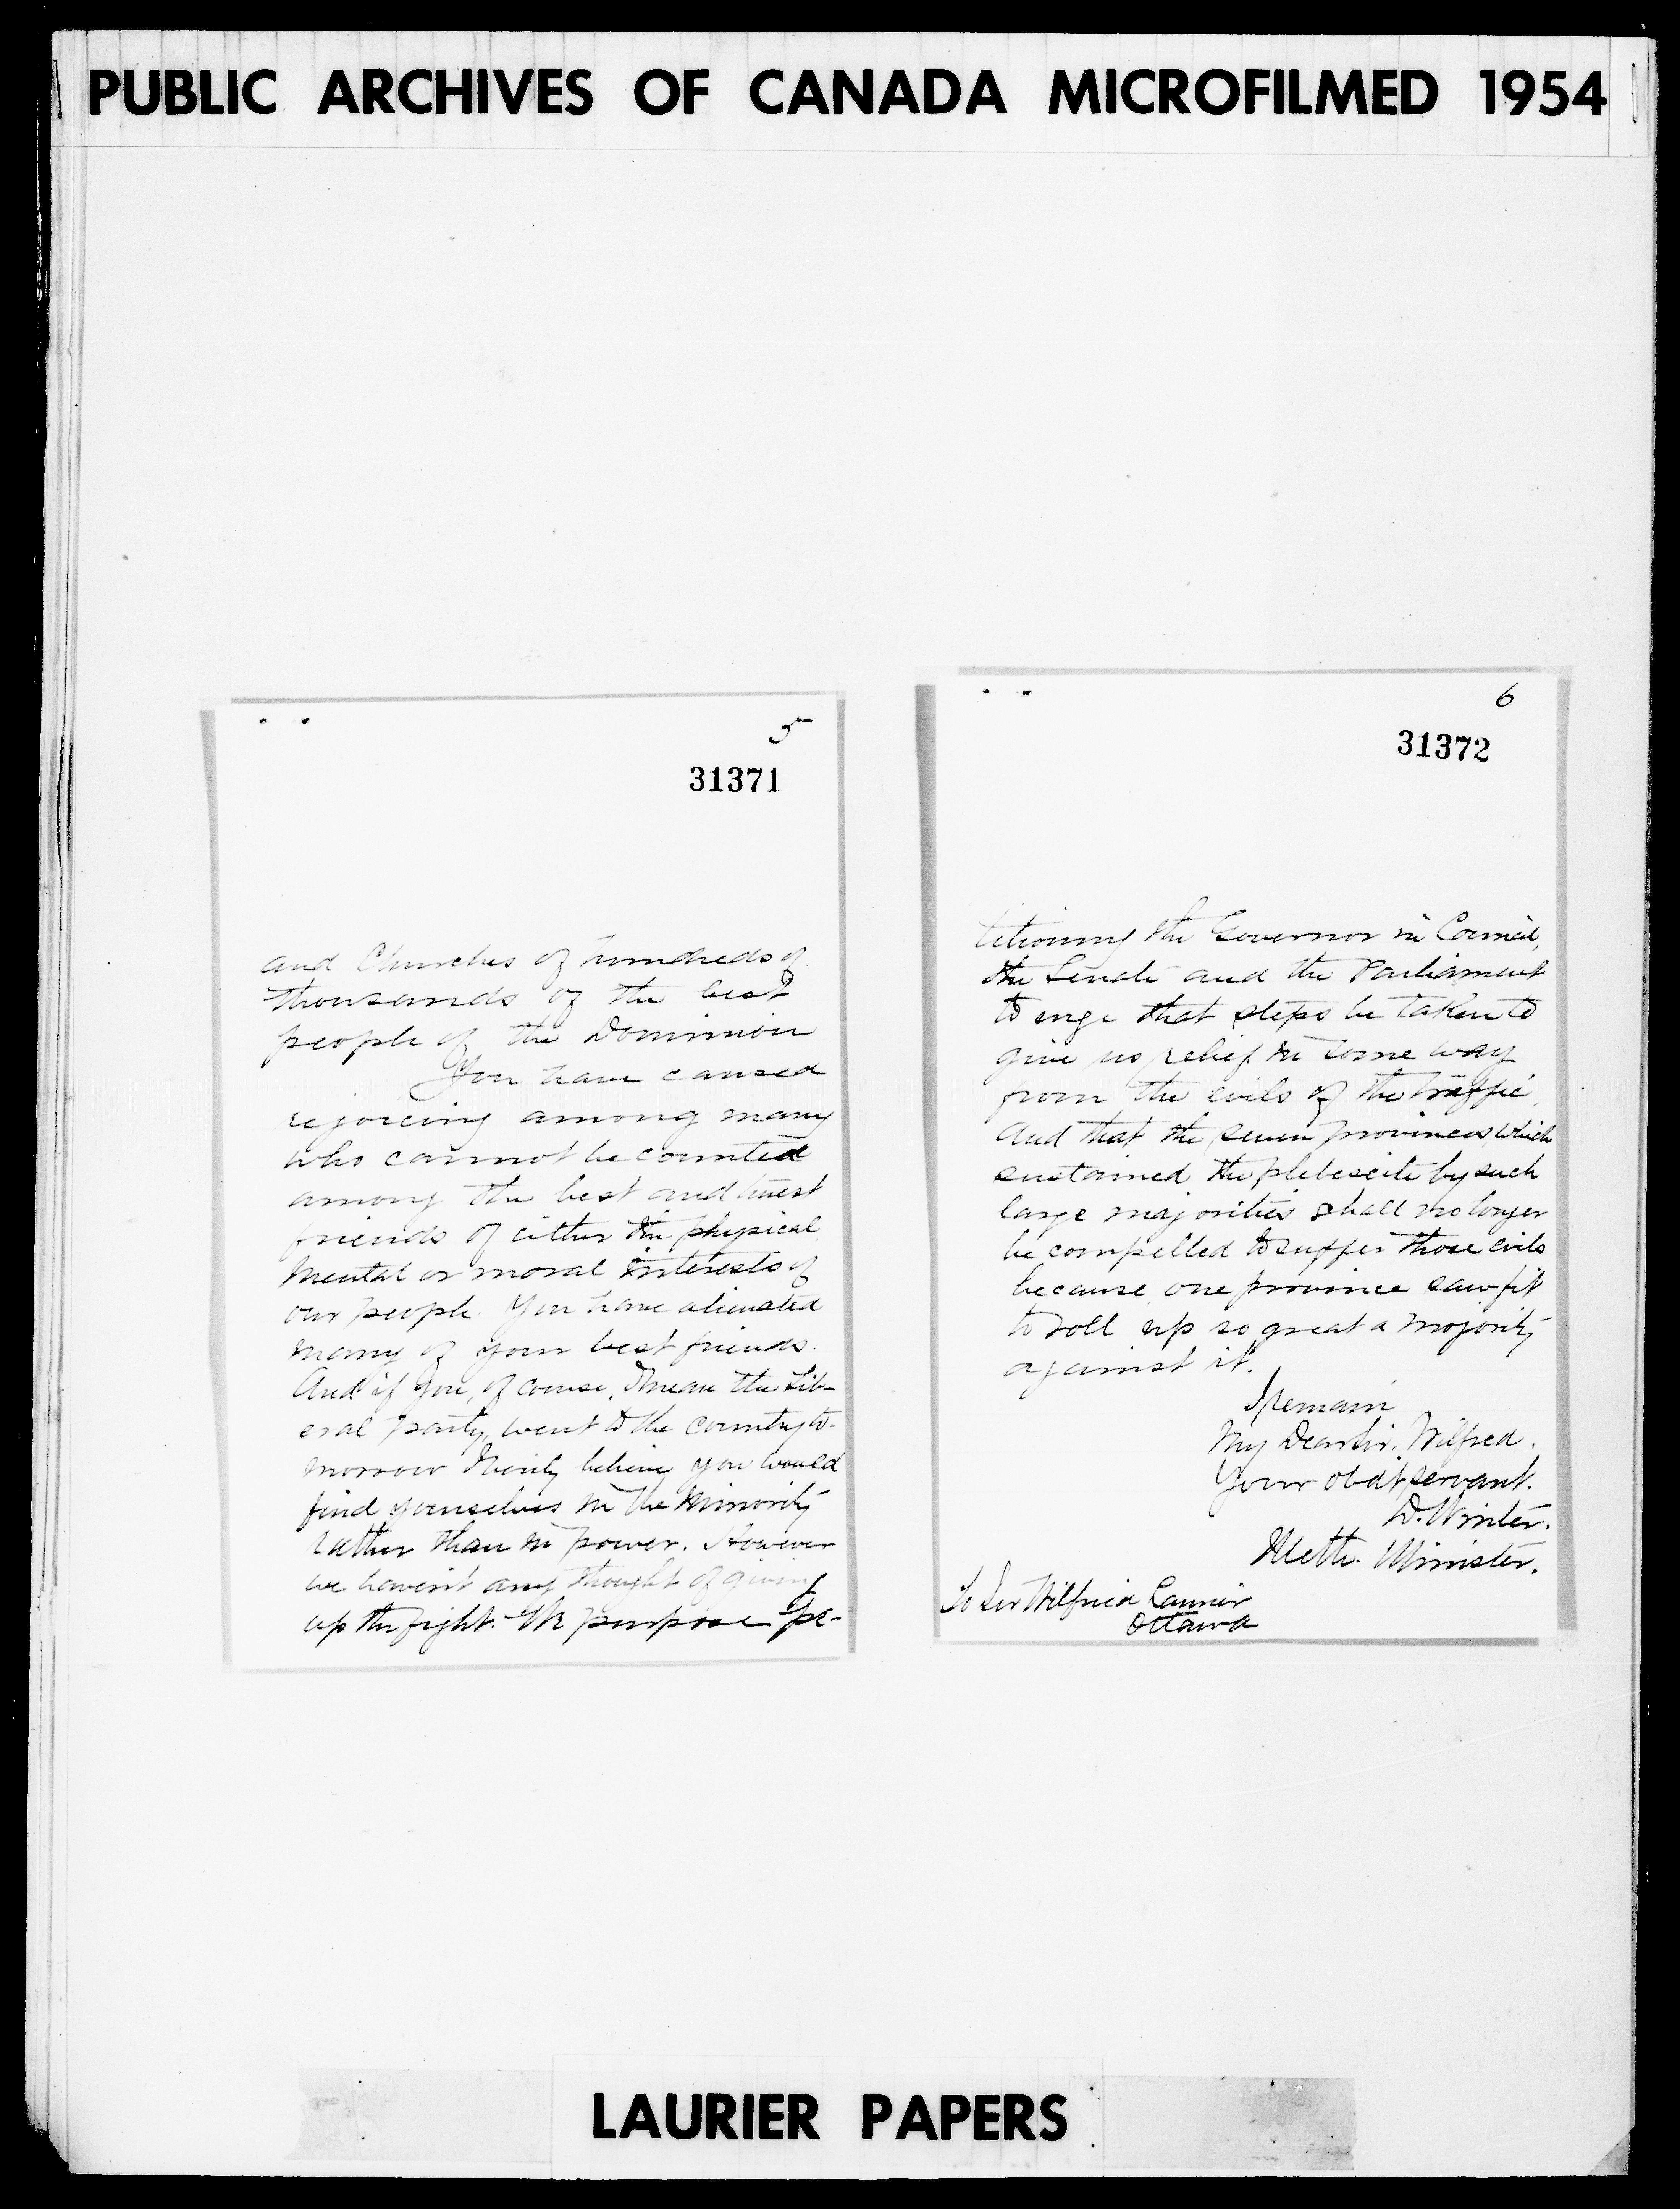 PUBLIC ARCHIVES OF CANADA MICROFILMED 1954
5
31371
and Churches of hundreds of
thousands of the best
people of the Dominion
You have caused
rejoicing among many
who cannot be counted
among the best and truest
friends of either the physical
mental or moral interests of
our people. You have alienated
many of your best friends.
And if you, of course, I mean the Lib-
eral party, went to the country to-
morrow I verily believe you would
find yourselves in the minority
rather than in power. However
we haven't any thought of giving
up the fight. We purpose pe-
6
31372
titioning the Governor in Council,
the Senate and the Parliament
to urge that steps be taken to
give us relief in some way
from the evils of the traffic,
and that the seven provinces which
sustained the plebescite by such
large majorities shall no longer
be compelled to suffer those evils
because one province saw fit
to roll up so great a majority
against it.
I remain
My Dear Sir. Wilfred.
Your obdt servant.
D. Winter.
Meth. Minister.
To Sir Wilfrid Laurier
Ottawa
LAURIER PAPERS